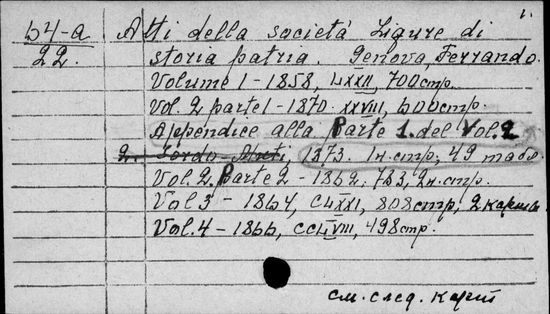 1.
54-a Atti della società Ligure di
22. storia patria. Genova, Ferrando.
Volume 1 - 1858, LXXII, 700стр.
Vol. 2 parte 1 - 1870. XXVIII, 600стр.
Appendice alla Parte 1. del Vol. 2
1873. 1н.стр; 49 табл.
Vol. 2. Parte 2 - 1862, 783, 2н.стр.
Vol 3 - 1864, CLXXI, 808стр, 2 карты
Vol. 4 - 1866, CCLVIII, 498стр.
см. след. карт